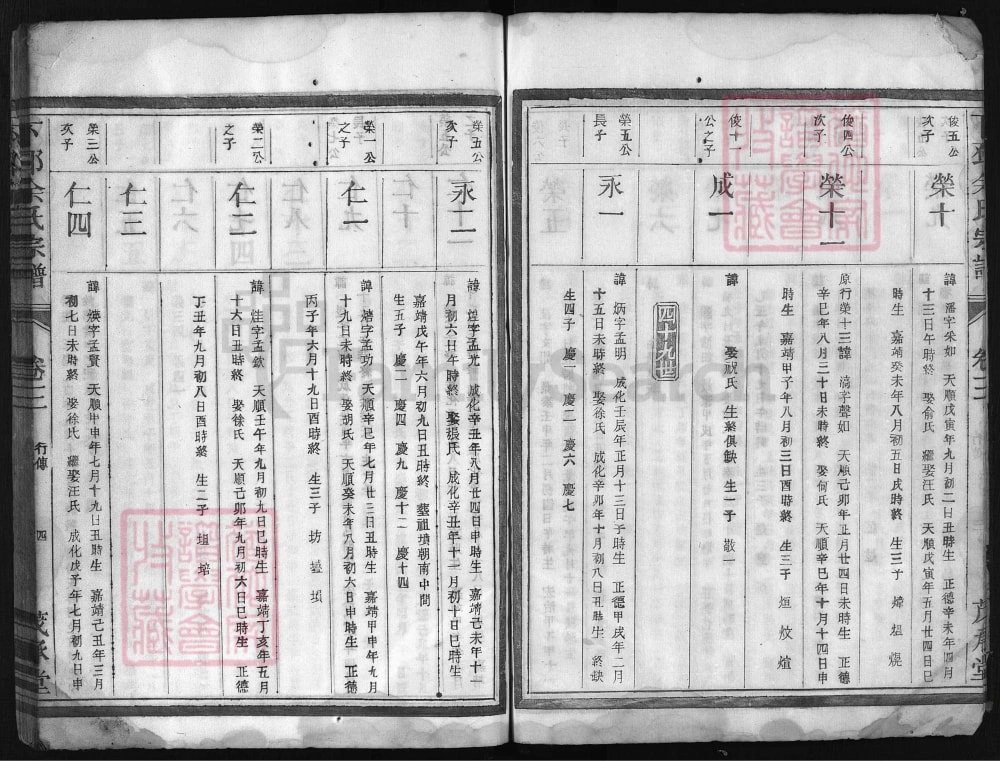 俊五公
次子
榮十
諱 燔字榮如 天順戊寅年九月初二日丑時生 正德辛未年四月
十三日午時終 娶俞氏 繼娶汪氏 天順戊寅年五月廿四日巳
時生 嘉靖癸未年八月初五日戌時終 生三子 煒 熅 焜
俊四公
次子
榮十一
原行榮十三諱 漪字聲如 天順己卯年正月廿四日未時生 正德
辛巳年八月三十日未時終 娶何氏 天順辛巳年十月十四日申
時生 嘉靖甲子年八月初三日酉時終 生三子 烜 炆 煊
俊十一
公之子
成一
諱 娶祝氏 生終俱缺 生一子 敬一
四十九世
榮五公
長子
永一
諱 炳字孟明 成化壬辰年正月十三日子時生 正德甲戌年二月
十五日未時終 娶徐氏 成化辛卯年十月初八日丑時生 終缺
生四子 慶一 慶二 慶六 慶七
榮五公
次子
永二
諱 煌字孟光 成化辛丑年八月廿四日申時生 嘉靖己未年十一
月初六日午時終 娶張氏 成化辛丑年十一月初十日巳時生
嘉靖戊午年六月初九日丑時終 墓祖墳朝南中間
生五子 慶二 慶四 慶九 慶十二 慶十四
榮一公
之子
仁一
諱 字孟功 天順辛巳年七月廿三日丑時生 嘉靖甲申年九月
十九日未時終 娶胡氏 天順癸未年八月初六日申時生 正德
丙子年六月十九日酉時終 生三子 坊
榮二公
之子
仁二
諱 字孟欽 天順壬午年九月初九日巳時生 嘉靖丁亥年五月
十六日丑時終 娶徐氏 天順己卯年九月初六日巳時生 正德
丁丑年九月初八日酉時終 生二子 坦 培
仁三
榮三公
次子
仁四
諱 煐字孟賢 天順甲申年七月十九日丑時生 嘉靖己丑年三月
初七日未時終 娶徐氏 繼娶汪氏 成化戊子年七月初九日申
余氏宗譜
卷二
行傳
四
茂承堂